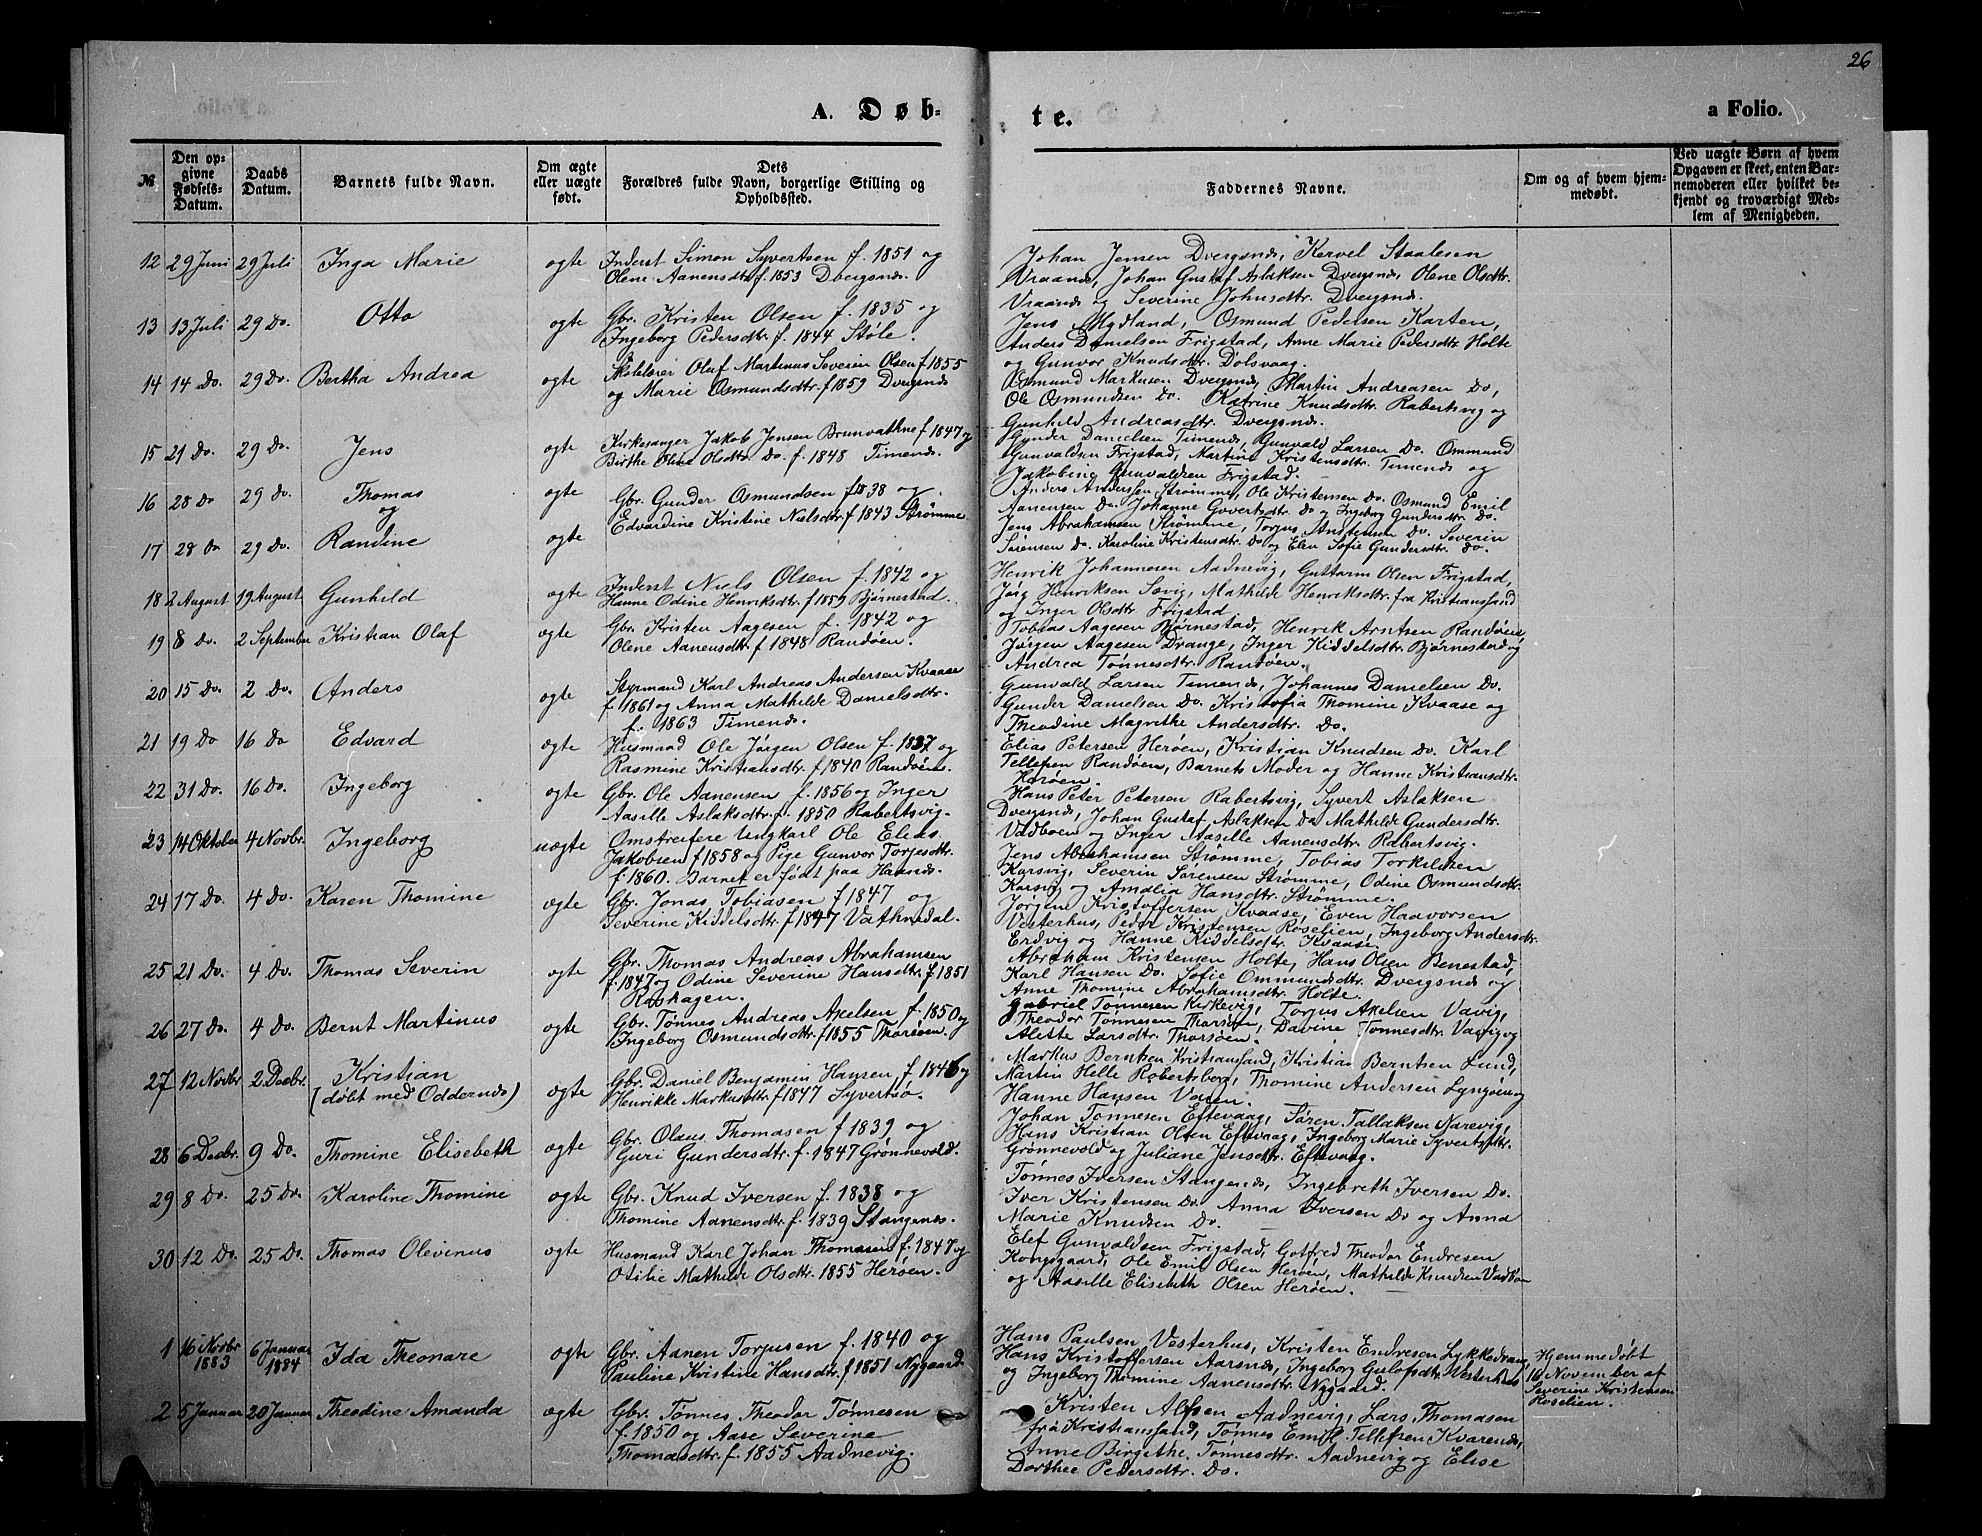 26
A. Døb-
te.
a Folio.
№
Den op-
givne
Fødsels-
Datum.
Daabs
Datum.
Barnets fulde Navn.
Om ægte
eller uægte
født.
Dets
Forældres fulde Navn, borgerlige Stilling og
Opholdssted.
Faddernes Navne.
Om og af hvem hjem-
medøbt.
Ved uægte Børn af hvem
Opgaven er skeet, enten Bar-
nemoderen eller hvilket be-
kjendt og troværdigt Med-
lem af Menigheden.
12 29 Juni 29 Juli Inga Marie ogte Inderst Simon Syvertsen f. 1851 og
Olene Aanensdtr. f. 1853 Dvergsnes.
Johan Jensen Dvergsnes, Kervel Staalesen
Vraanes, Johan Gustaf Aslaksen Dvergsnes, Olene Olsdtr.
Vraanes og Severine Johnsdtr. Dvergsnes.
13 13 Juli 29 Do. Otto ogte Gbr. Kristen Olsen f. 1835 og
Ingeborg Pedersdtr. f. 1844 Støle.
Jens Mydland, Osmund Pedersen Karten,
Anders Danielsen Frigstad, Anne Marie Pedersdtr. Holte
og Gunvor Knudsdtr. Dolsvaag.
14 14 Do. 29 Do. Bertha Andrea ogte Skolelærer Oluf Martinus Severin Olsen f 1855
og Marie Osmundsdtr. f 1859 Dvergsnes
Osmund Markusen Dvergsnes, Martin Andreasen Do,
Ole Osmundsen Do. Katrine Knudsdtr. Rabertsvig og
Gunhild Andreasdtr. Dvergsnes.
15 21 Do. 29 Do. Jens ogte Kirkesanger Jakob Jensen Brunvathne f 1847 og
Birthe Oline Olsdtr. Do. f. 1848 Timenes.
Gunder Danielsen Timenes, Gunvald Larsen Do. Ommund
Gunvaldsen Frigstad, Martine Kristensdtr. Timenes og
Jakobine Gunvaldsen Frigstad.
16 28 Do 29 Do. Thomas ogte Gbr. Gunder Osmundsen f 1838 og
og
Edvardine Kristine Nielsdtr. f 1843 Strømme.
Anders Andersen Strømme, Ole Kristensen Do. Osmund Emil
Aanensen Do. Johanne Govertsdtr. Do og Ingeborg Gundersdtr. Do.
17 28 Do 29 Do. Randine ogte
Jens Abrahamsen Strømme, Torjus Anstensen Do. Severin
Sørensen Do. Karoline Kristensdtr. Do og Elen Sofie Gundersdtr. Do.
18 2 August 19 August Gunhild ogte Inderst Niels Olsen f. 1842 og
Hanne Odine Henriksdtr. f 1859 Bjørnestad.
Henrik Johannesen Aadnevig, Guttorm Olsen Frigstad,
Jørg Henriksen Sævig, Mathilde Henriksdtr. fra Kristianssand
og Inger Olsdtr. Frigstad
19 8 Do. 2 September Kristian Olaf ogte Gbr. Kristen Aagesen f. 1842 og
Olene Aanensdtr. f 1848 Randøen.
Tobias Aagesen Bjørnestad, Henrik Arntsen Randøen,
Jørgen Aagesen Drange, Inger Kiddelsdtr. Bjørnestad og
Andrea Tønnesdtr. Randøen.
20 15 Do. 2 Do. Anders ogte Styrmand Karl Andreas Andersen Kvaase
f 1861 og Anna Mathilde Danielsdtr.
f. 1863 Timenes.
Gunvald Larsen Timenes, Johannes Danielsen Do.
Gunder Danielsen Do. Kristofia Thomine Kvaase og
Theodine Magrethe Andersdtr. Do.
21 19 Do 16 Do Edvard ogte Husmand Ole Jørgen Olsen f. 1837 og
Rasmine Kristiansdtr. f 1840 Randøen.
Elias Petersen Herøen, Kristian Knudsen Do. Karl
Tellefsen Randøen, Barnets Moder og Hanne Kristiansdtr.
Herøen.
22 31 Do. 16 Do. Ingeborg ogte Gbr. Ole Aanensen f. 1856 og Inger
Aasille Aslaksdtr. f. 1850 Rabertsvig.
Hans Peter Petersen Rabertsvig, Syvert Aslaksen
Dvergsnes, Johan Gustaf Aslaksen Do Mathilde Gundersdtr.
Vadboen og Inger Aasille Aanensdtr. Rabertsvig.
23 14 Oktober 4 Novbr. Ingeborg uægte Omstreifere Ungkarl Ole Elias
Jakobsen f 1858 og Pige Gunvor Torjesdtr.
f. 1860. Barnet er født paa Haanes.
Jens Abrahamsen Strømme, Tobias Torkildsen
Korsvig, Severin Sørensen Strømme, Odine Osmundsdtr.
Korsvig og Amalia Hansdtr. Strømme.
24 17 Do. 4 Do. Karen Thomine ogte Gbr. Jonas Tobiasen f 1847 og
Severine Kiddelsdtr. f 1847 Vathnedal.
Jørgen Kristoffersen Kvaase, Even Haavorsen
Vesterhus, Peder Kristensen Roselien, Ingeborg Andersdtr.
Erdvig og Hanne Kiddelsdtr. Kvaase.
25 21 Do. 4 Do. Thomas Severin ogte Gbr. Thomas Andreas Abrahamsen
f. 1847 og Odine Severine Hansdtr. f 1851
Rashagen.
Abraham Kristensen Holte, Hans Olsen Benestad,
Karl Hansen Do. Sofie Ommundsdtr. Dvergsnes og
Anne Thomine Abrahamsdtr. Holte.
26 27 Do. 4 Do. Bernt Martinus ogte Gbr. Tønnes Andreas Axelsen f. 1850 og
Ingeborg Osmundsdtr. f 1855 Thorsøen.
Gabriel Tønnesen Kirkevig, Torjus Akelsen Vavig,
Theodor Tønnesen Thorsøen, Davine Tønnesdtr. Vavig og
Alette Larsdtr. Thorsøen.
27 12 Novbr 2 Decbr. Kristian
(døbt med Oddernes) ogte Gbr. Daniel Benjamin Hansen f. 1846 og
Henrikke Markusdtr. f 1847 Syvertsø.
Markus Berntsen Kristianssand, Kristian Berntsen Lund,
Martin Helle Robertsberg, Thomine Andersen Lyngøen og
Hanne Hansen Varen.
28 6 Decbr. 9 Do. Thomine Elisebeth ogte Gbr. Olaus Thomasen f 1839 og
Guri Gundersdtr. f. 1847 Grønnevold.
Johan Tønnesen Eftevaag, Søren Tallaksen Narevig,
Hans Kristian Olsen Eftevaag, Ingeborg Marie Syvertsdtr.
Grønnevold og Juliane Jensdtr. Eftevaag.
29 8 Do. 25 Do. Karoline Thomine ogte Gbr. Knud Iversen f. 1838 og
Thomine Aanensdtr. f. 1839 Stangenes.
Tønnes Iversen Stangenes, Ingebreth Iversen Do.
Iver Kristensen Do. Anna Iversen Do og Anna
Marie Knudsen Do.
30 12 Do. 25 Do. Thomas Olevinus ogte Husmand Karl Johan Thomasen f. 1847 og
Otilie Mathilde Olsdtr. 1855 Herøen.
Elef Gunvaldsen Frigstad, Gotfred Theodor Endresen
Kongsgaard, Ole Emil Olsen Herøen, Mathilde Knudsen Vadboen
og Aasille Elisebeth Olsen Herøen.
1 16 Novbr 1883 6 Januar 1884 Ida Theonare ogte Gbr. Aanen Torjusen f. 1840 og
Pauline Kristine Hansdtr. f 1851 Nygaard.
Hans Paulsen Vesterhus, Kristen Endresen Lykkedrang,
Hans Kristoffersen Aarsnes, Ingeborg Gulofsdtr. Vesterhus
og Ingeborg Thomine Aanensdtr. Nygaard.
Hjemmedøbt
16 November af
Severine Kristensen
Roselien.
2 5 Januar 20 Januar Theodine Amanda ogte Gbr. Tønnes Theodor Tønnesen
f. 1850 og Aase Severine
Thomasdtr. f. 1855 Aadnevig.
Kristen Alfsen Aadnevig, Lars Thomasen
fra Kristianssand, Tønnes Emil Tellefsen Kvarenes,
Anne Birgithe Tønnesdtr. Aadnevig og Elise
Dorthee Pedersdtr. Do.